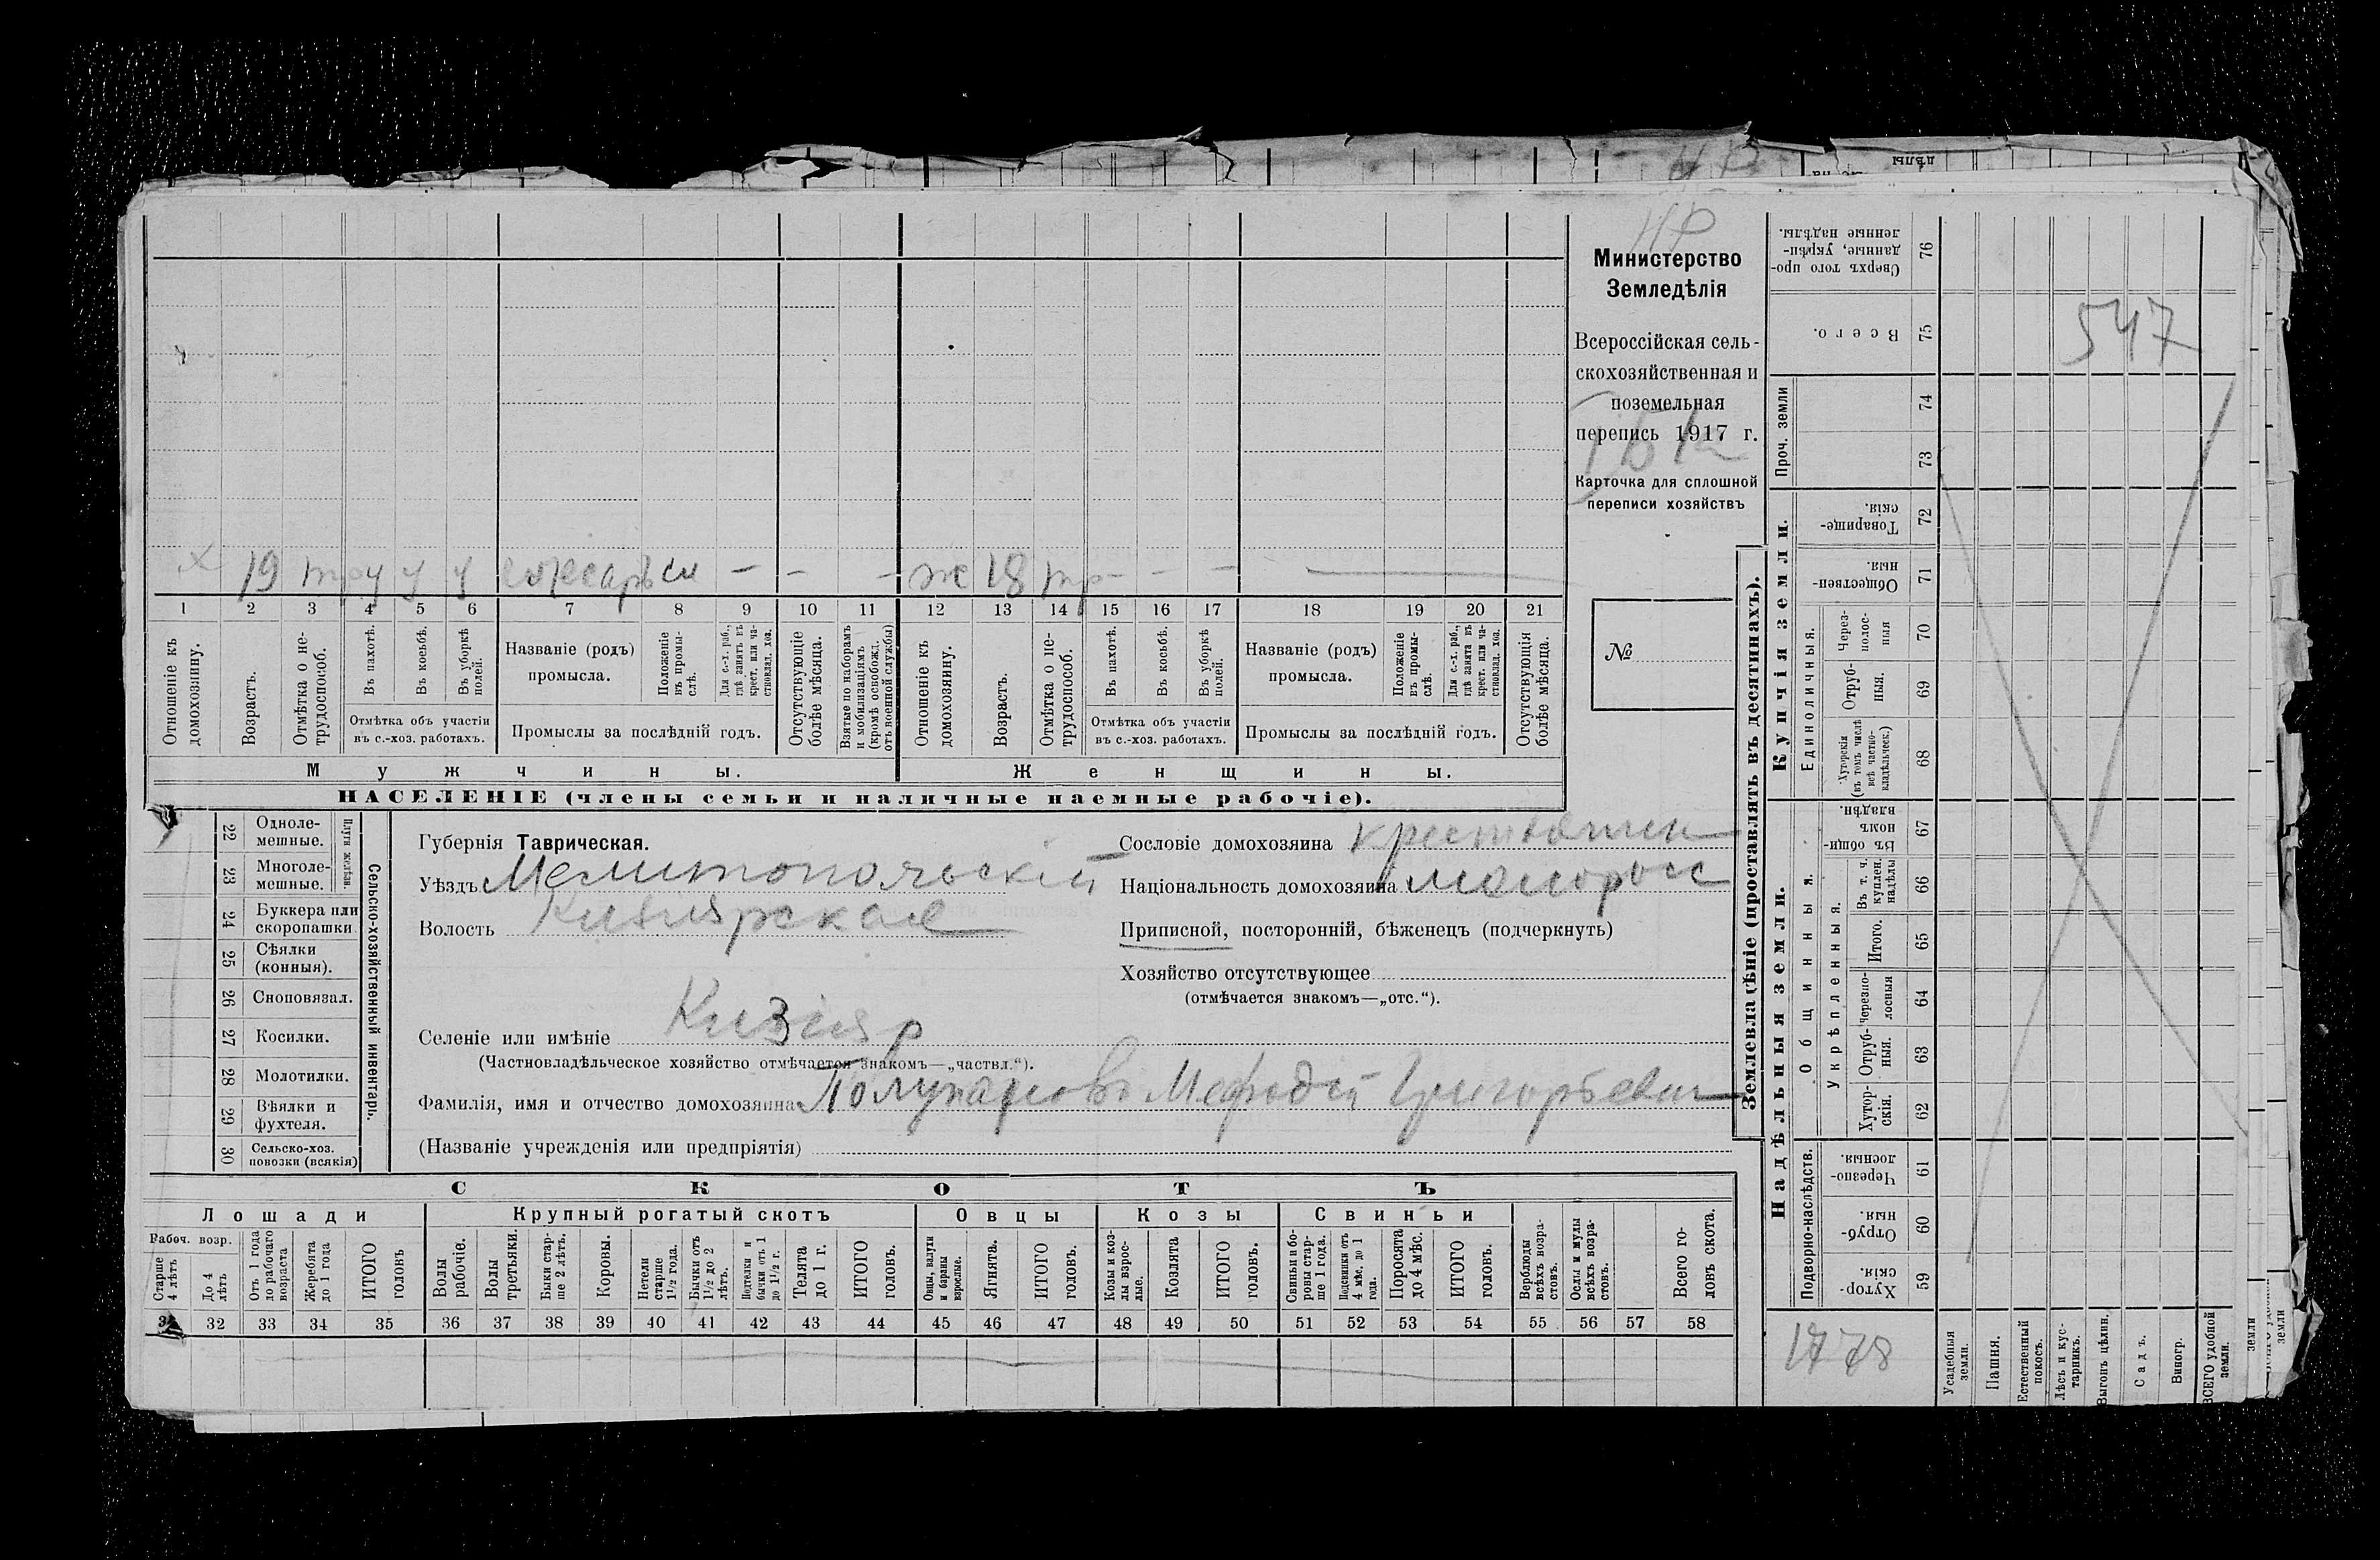 НР
Министерство
Земледѣлія
Всероссійская сель-
скохозяйственная и
поземельная
перепись 1917 г.
Карточка для сплошной
переписи хозяйствъ
№
х 19 тр у у у слесарь сл – – – ж 18 тр – – –
1 2 3 4 5 6 7 8 9 10 11 12 13 14 15 16 17 18 19 20 21
Отношеніе къ домохозяину.
Возрастъ.
Отмѣтка о не-трудоспособ.
Въ пахотѣ.
Въ косьбѣ.
Въ уборкѣ полей.
Отмѣтка объ участіи
въ с.-хоз. работахъ.
Названіе (родъ)
промысла.
Положеніе въ промы-слѣ.
Для с.-х. раб., гдѣ занятъ въ крест. или ча-стновлад. хоз.
Промыслы за послѣдній годъ.
Отсутствующіе болѣе мѣсяца.
Взятые по наборамъ и мобилизаціямъ (кромѣ освобожд. отъ военной службы)
Отношеніе къ домохозяину.
Возрастъ.
Отмѣтка о не-трудоспособ.
Въ пахотѣ.
Въ косьбѣ.
Въ уборкѣ полей.
Отмѣтка объ участіи
въ с.-хоз. работахъ.
Названіе (родъ)
промысла.
Положеніе въ промы-слѣ.
Для с.-х. раб., гдѣ занята въ крест. или ча-стновлад. хоз.
Промыслы за послѣдній годъ.
Отсутствующія болѣе мѣсяца.
Мужчины. Женщины.
НАСЕЛЕНІЕ (члены семьи и наличные наемные рабочіе).
22 Одноле-мешные.
23 Многоле-мешные.
Плуги желѣзн.
24 Буккера или скоропашки
25 Сѣялки (конныя).
26 Сноповязал.
27 Косилки.
28 Молотилки.
29 Вѣялки и фухтеля.
30 Сельско-хоз. повозки (всякія)
Сельско-хозяйственный инвентарь.
Губернія Таврическая.
Уѣздъ Мелитопольскій
Волость Кизіярская
Селеніе или имѣніе Кизіяр
(Частновладѣльческое хозяйство отмѣчается знакомъ—„частвл.“).
Фамилія, имя и отчество домохозяина Мефодій Григорьевич
(Названіе учрежденія или предпріятія)
Сословіе домохозяина крестьянин
Національность домохозяина малоросс
Приписной, посторонній, бѣженецъ (подчеркнуть)
Хозяйство отсутствующее
(отмѣчается знакомъ—„отс.“).
СКОТЪ
Лошади Крупный рогатый скотъ Овцы Козы Свиньи
Рабоч. возр.
Старше 4 лѣтъ
До 4 лѣтъ
Отъ 1 года до рабочаго возраста
Жеребята до 1 года
ИТОГО головъ
Волы рабочіе.
Волы третьяки.
Быки стар-ше 2 лѣтъ.
Коровы.
Нетели старше 1½ года.
Бычки отъ 1½ до 2 лѣтъ.
Подтелки и бычки отъ 1 до 1½ г.
Телята до 1 г.
ИТОГО головъ.
Овцы, валухи и бараны взрослые.
Ягнята.
ИТОГО головъ.
Козы и коз-лы взрос-лые.
Козлята
ИТОГО головъ.
Свиньи и бо-ровы стар-ше 1 года.
Подсвинки отъ 4 мѣс. до 1 года.
Поросята до 4 мѣс.
ИТОГО головъ.
Верблюды всѣхъ возра-стовъ.
Ослы и мулы всѣхъ возра-стовъ.
Всего го-ловъ скота.
32 33 34 35 36 37 38 39 40 41 42 43 44 45 46 47 48 49 50 51 52 53 54 55 56 57 58
Землевладѣніе (проставлять въ десятинахъ).
Надѣльныя земли.
Купчія земли.
Проч. земли
Подворно-наслѣдств.
Общинныя.
Укрѣпленныя.
Единоличныя.
Сверхъ того про-данные, укрѣп-ленные надѣлы. 76
Всего. 75
74
73
Товарище-скія. 72
Обществен-ныя. 71
Через-полос-ныя 70
Отруб-ныя. 69
Хуторскія (въ томъ числѣ всѣ частно-владѣльческ.) 68
Въ общин-номъ владѣн. 67
Въ т. ч. куплен. надѣлы 66
Итого. 65
Черезпо-лосныя 64
Отруб-ныя. 63
Хутор-скія. 62
Черезпо-лосныя. 61
Отруб-ныя. 60
Хутор-скія. 59
547
1778
Усадебная земля.
Пашня.
Естественный покосъ.
Лѣсъ и кус-тарникъ.
Выгонъ цѣлин.
Садъ.
Виногр.
ВСЕГО удобной земли.
земли